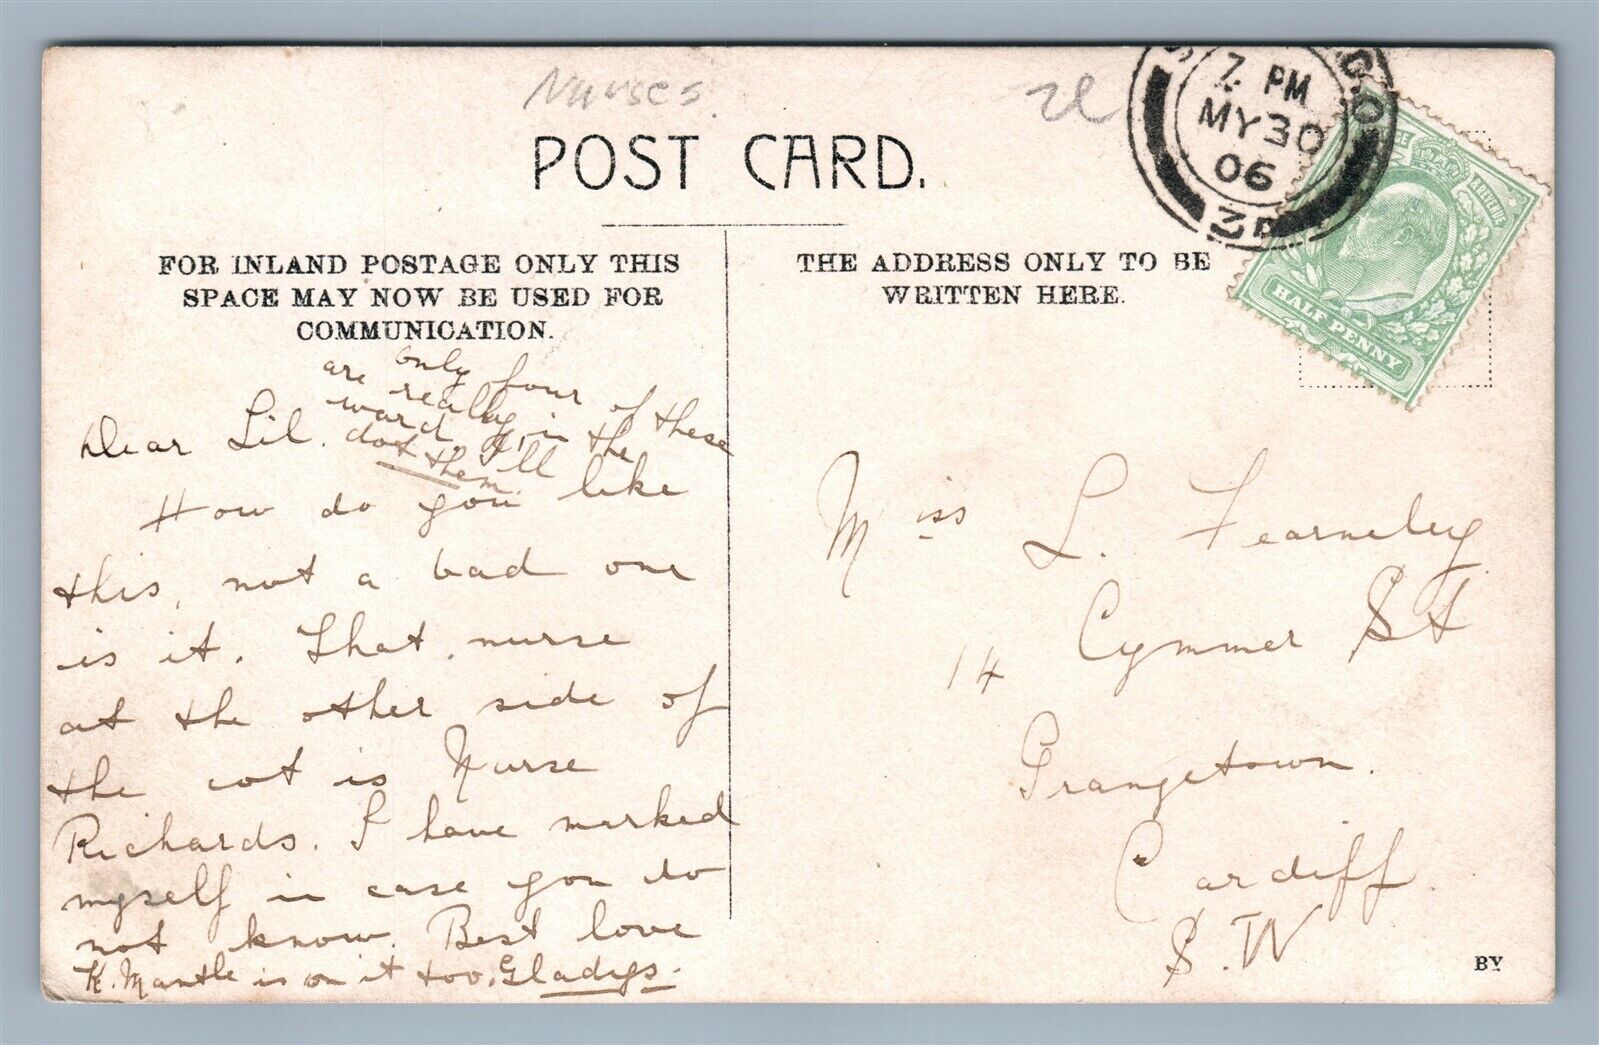 Nurses
POST CARD.
7. PM
MY 30
06
HALF PENNY
FOR INLAND POSTAGE ONLY THIS
SPACE MAY NOW BE USED FOR
COMMUNICATION.
THE ADDRESS ONLY TO BE
WRITTEN HERE.
only four of these
are really in the
ward. I'll
dot them.
Dear Lil.
How do you like
this, not a bad one
is it. That nurse
at the other side of
the cot is Nurse
Richards. I have marked
myself in case you do
not know. Best love
K. Mantle is on it too. Gladys.
Miss L. Fearneley
14 Cymmer St
Grangetown.
Cardiff.
S. W
BY